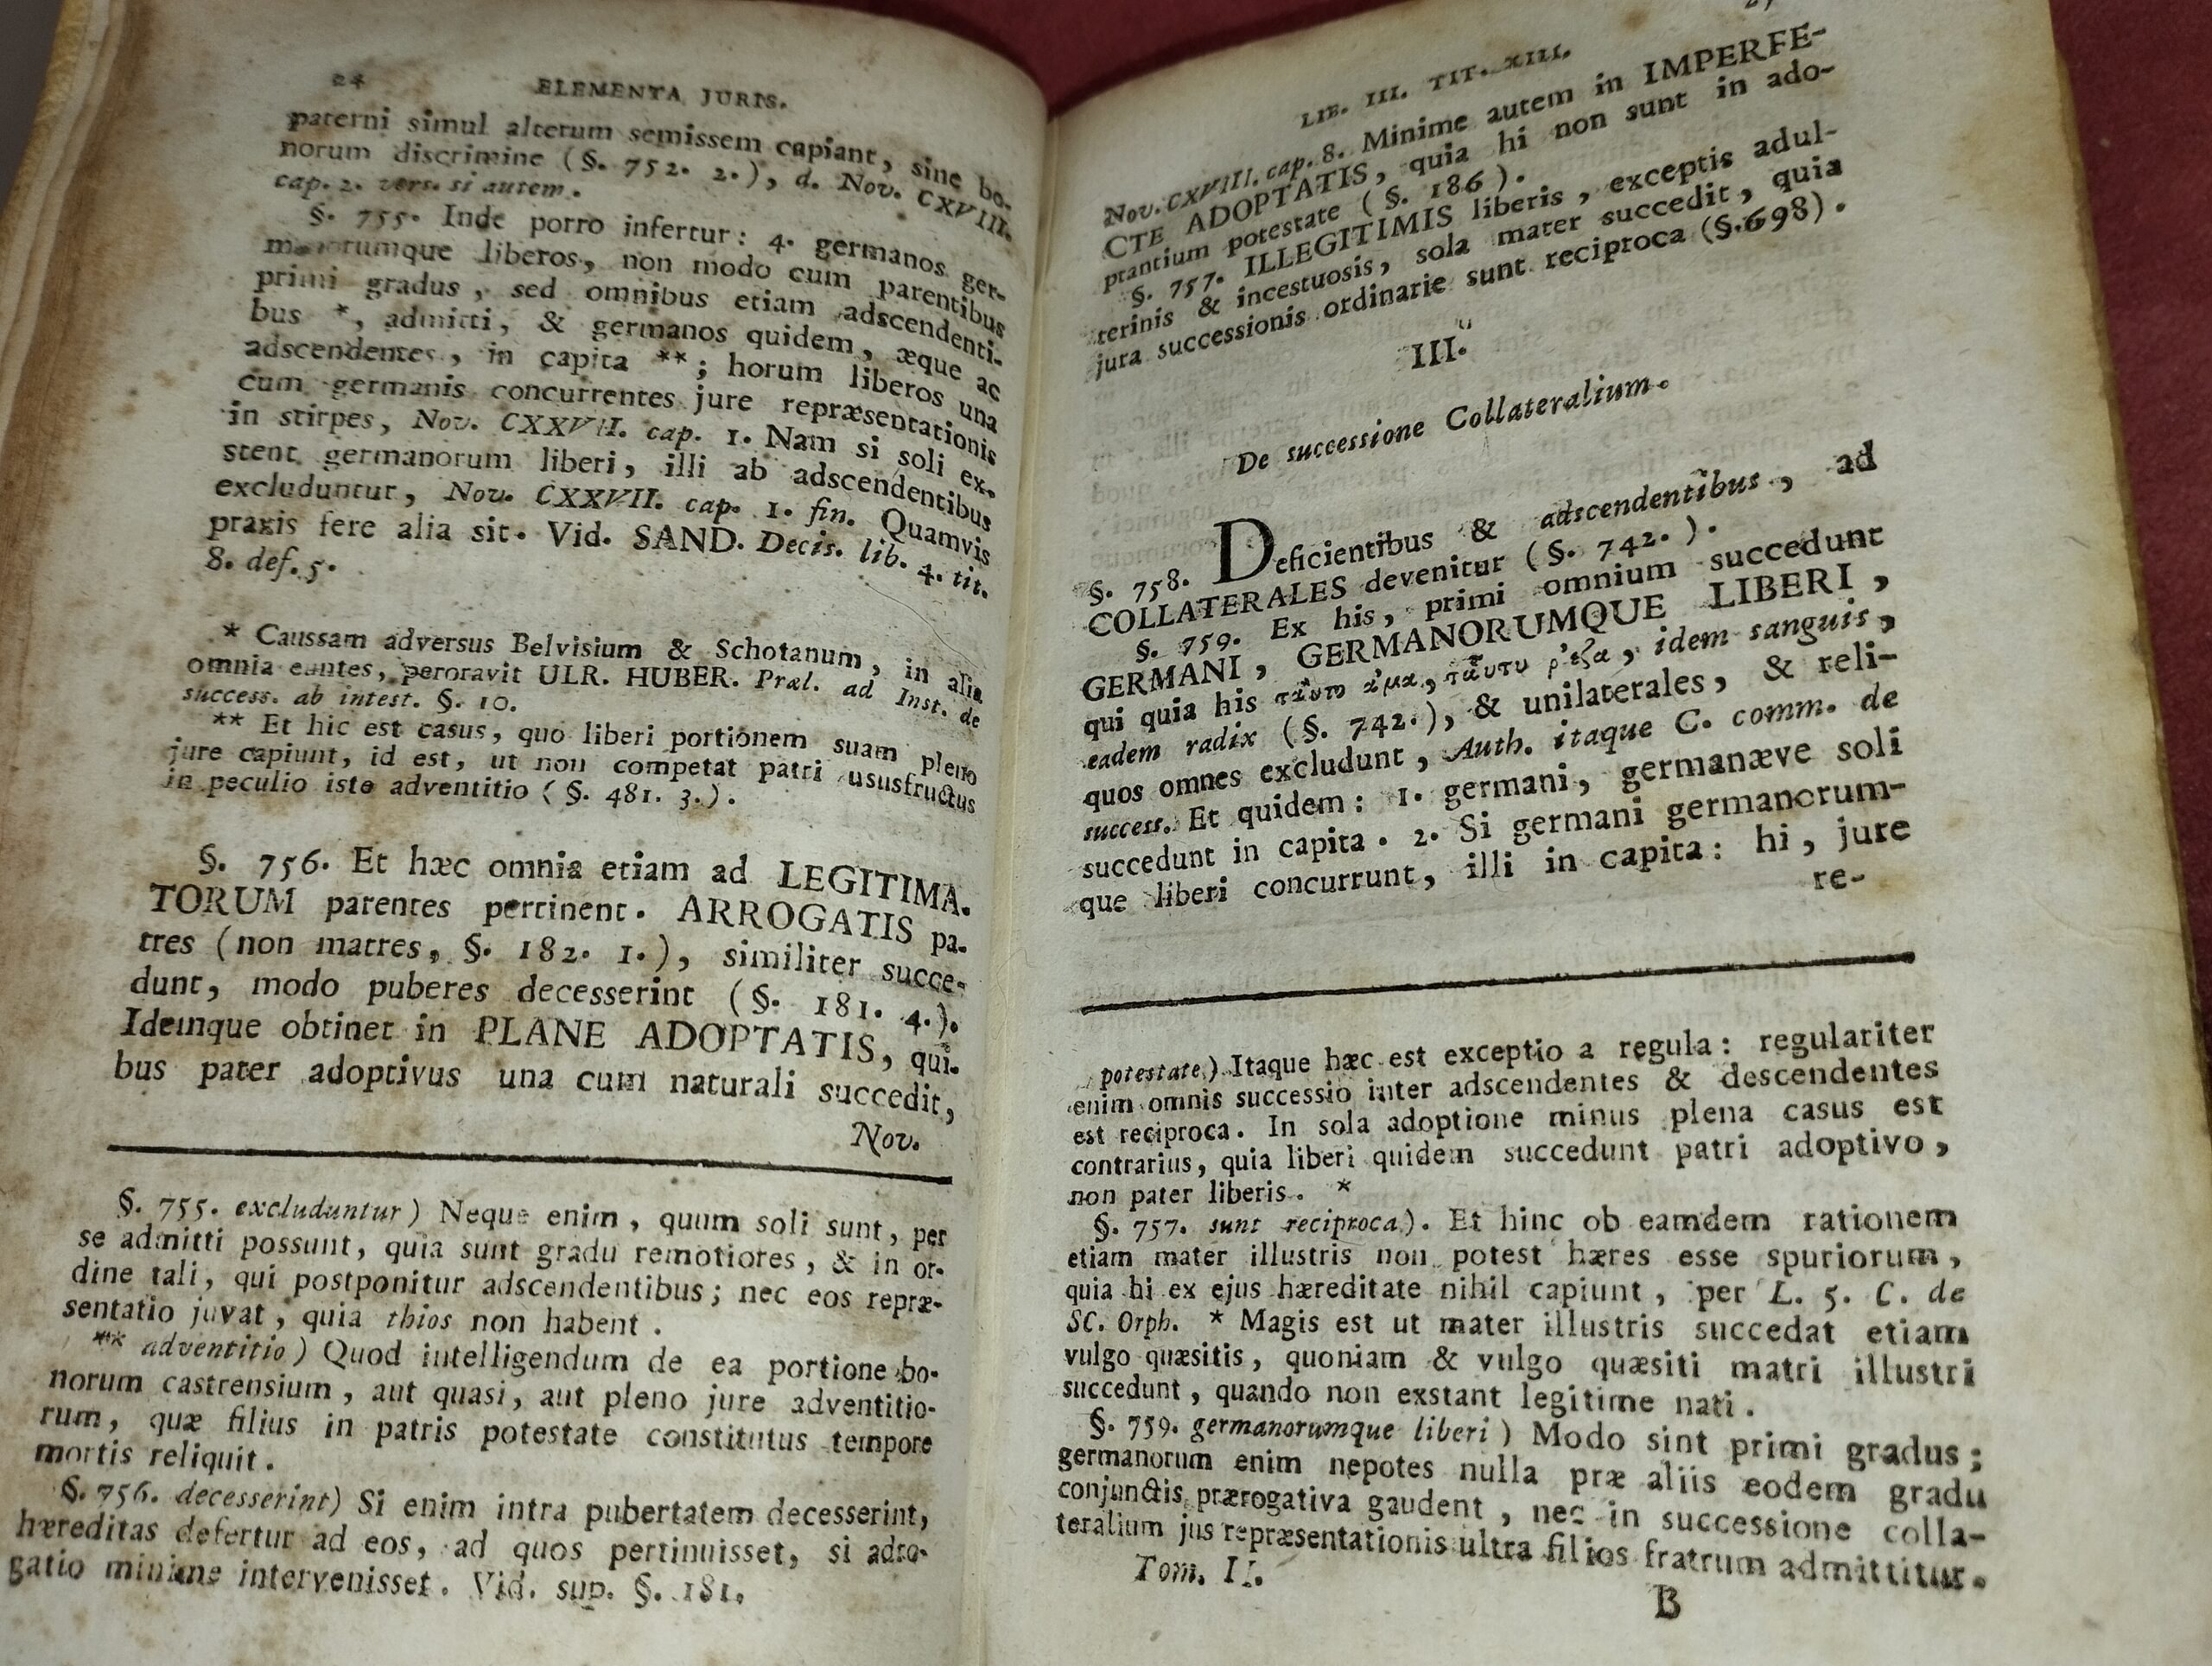 24 ELEMENTA JURIS.
paterni simul alterum semissem capiant, sine bo-
norum discrimine (§. 752. 2.), d. Nov. CXVIII.
cap. 2. vers. si autem.
§. 755. Inde porro infertur: 4. germanos ger-
manorumque liberos, non modo cum parentibus
primi gradus, sed omnibus etiam adscendenti-
bus *, admitti, & germanos quidem, æque ac
adscendentes, in capita **; horum liberos una
cum germanis concurrentes jure repræsentationis
in stirpes, Nov. CXXVII. cap. 1. Nam si soli ex-
stent germanorum liberi, illi ab adscendentibus
excluduntur, Nov. CXXVII. cap. 1. fin. Quamvis
praxis fere alia sit. Vid. SAND. Decis. lib. 4. tit.
8. def. 5.
* Caussam adversus Belvisium & Schotanum, in alia
omnia euntes, peroravit ULR. HUBER. Præl. ad Inst. de
success. ab intest. §. 10.
** Et hic est casus, quo liberi portionem suam pleno
jure capiunt, id est, ut non competat patri ususfructus
in peculio isto adventitio (§. 481. 3.).
§. 756. Et hæc omnia etiam ad LEGITIMA-
TORUM parentes pertinent. ARROGATIS pa-
tres (non matres, §. 182. 1.), similiter succe-
dunt, modo puberes decesserint (§. 181. 4.).
Idemque obtinet in PLANE ADOPTATIS, qui-
bus pater adoptivus una cum naturali succedit,
Nov.
§. 755. excluduntur) Neque enim, quum soli sunt, per
se admitti possunt, quia sunt gradu remotiores, & in or-
dine tali, qui postponitur adscendentibus; nec eos repræ-
sentatio juvat, quia thios non habent.
** adventitio) Quod intelligendum de ea portione bo-
norum castrensium, aut quasi, aut pleno jure adventitio-
rum, quæ filius in patris potestate constitutus tempore
mortis reliquit.
§. 756. decesserint) Si enim intra pubertatem decesserint,
hæreditas defertur ad eos, ad quos pertinuisset, si adro-
gatio minime intervenisset. Vid. sup. §. 181.
LIB. III. TIT. XIII.
Nov. CXVIII. cap. 8. Minime autem in IMPERFE-
CTE ADOPTATIS, quia hi non sunt in ado-
ptantium potestate (§. 186).
§. 757. ILLEGITIMIS liberis, exceptis adul-
terinis & incestuosis, sola mater succedit, quia
jura successionis ordinarie sunt reciproca (§. 698).
III.
De successione Collateralium.
§. 758. Deficientibus & adscendentibus, ad
COLLATERALES devenitur (§. 742.).
§. 759. Ex his, primi omnium succedunt
GERMANI, GERMANORUMQUE LIBERI,
qui quia his ταὐτο αἷμα, ταὐτυ ῥίζα, idem sanguis,
eadem radix (§. 742.), & unilaterales, & reli-
quos omnes excludunt, Auth. itaque C. comm. de
success. Et quidem: 1. germani, germanæve soli
succedunt in capita. 2. Si germani germanorum-
que liberi concurrunt, illi in capita: hi, jure
re-
potestate.) Itaque hæc est exceptio a regula: regulariter
enim omnis successio inter adscendentes & descendentes
est reciproca. In sola adoptione minus plena casus est
contrarius, quia liberi quidem succedunt patri adoptivo,
non pater liberis. *
§. 757. sunt reciproca.). Et hinc ob eamdem rationem
etiam mater illustris non potest hæres esse spuriorum,
quia hi ex ejus hæreditate nihil capiunt, per L. 5. C. de
SC. Orph. * Magis est ut mater illustris succedat etiam
vulgo quæsitis, quoniam & vulgo quæsiti matri illustri
succedunt, quando non exstant legitime nati.
§. 759. germanorumque liberi) Modo sint primi gradus;
germanorum enim nepotes nulla præ aliis eodem gradu
conjunctis prærogativa gaudent, nec in successione colla-
teralium jus repræsentationis ultra filios fratrum admittitur.
Tom. II.
B